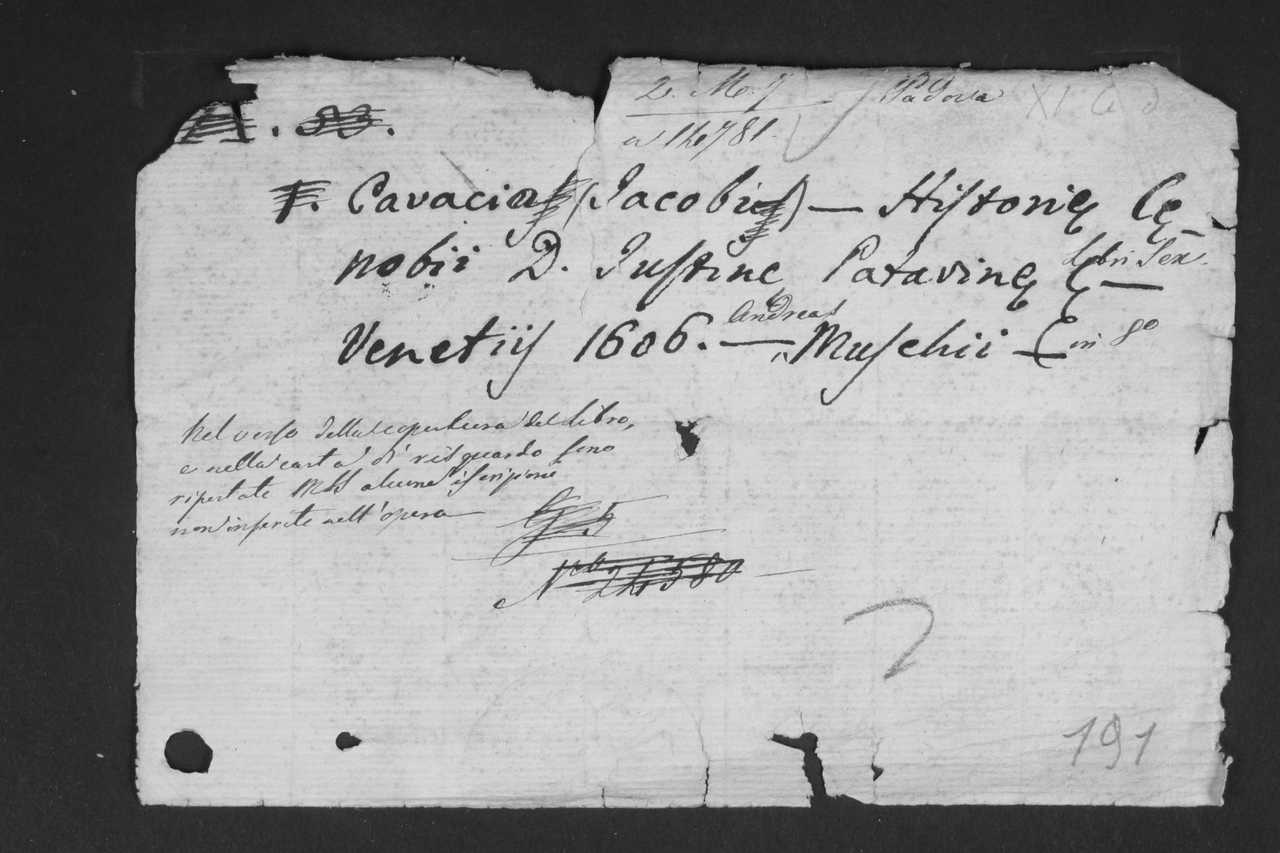 2. Mo. 7 Padova XI C d
a 14781.
Cavacia (Jacobus) — Historię Cę-
nobii D. Justinę Patavinę Libri Sex.
Venetiis 1606. — Andreas Muschii — in 8º
Nel verso della copertura del libro,
e nella carta di risguardo sono
riportate MSS alcune iscrizioni
non inserite nell'opera
Nro 24580
191